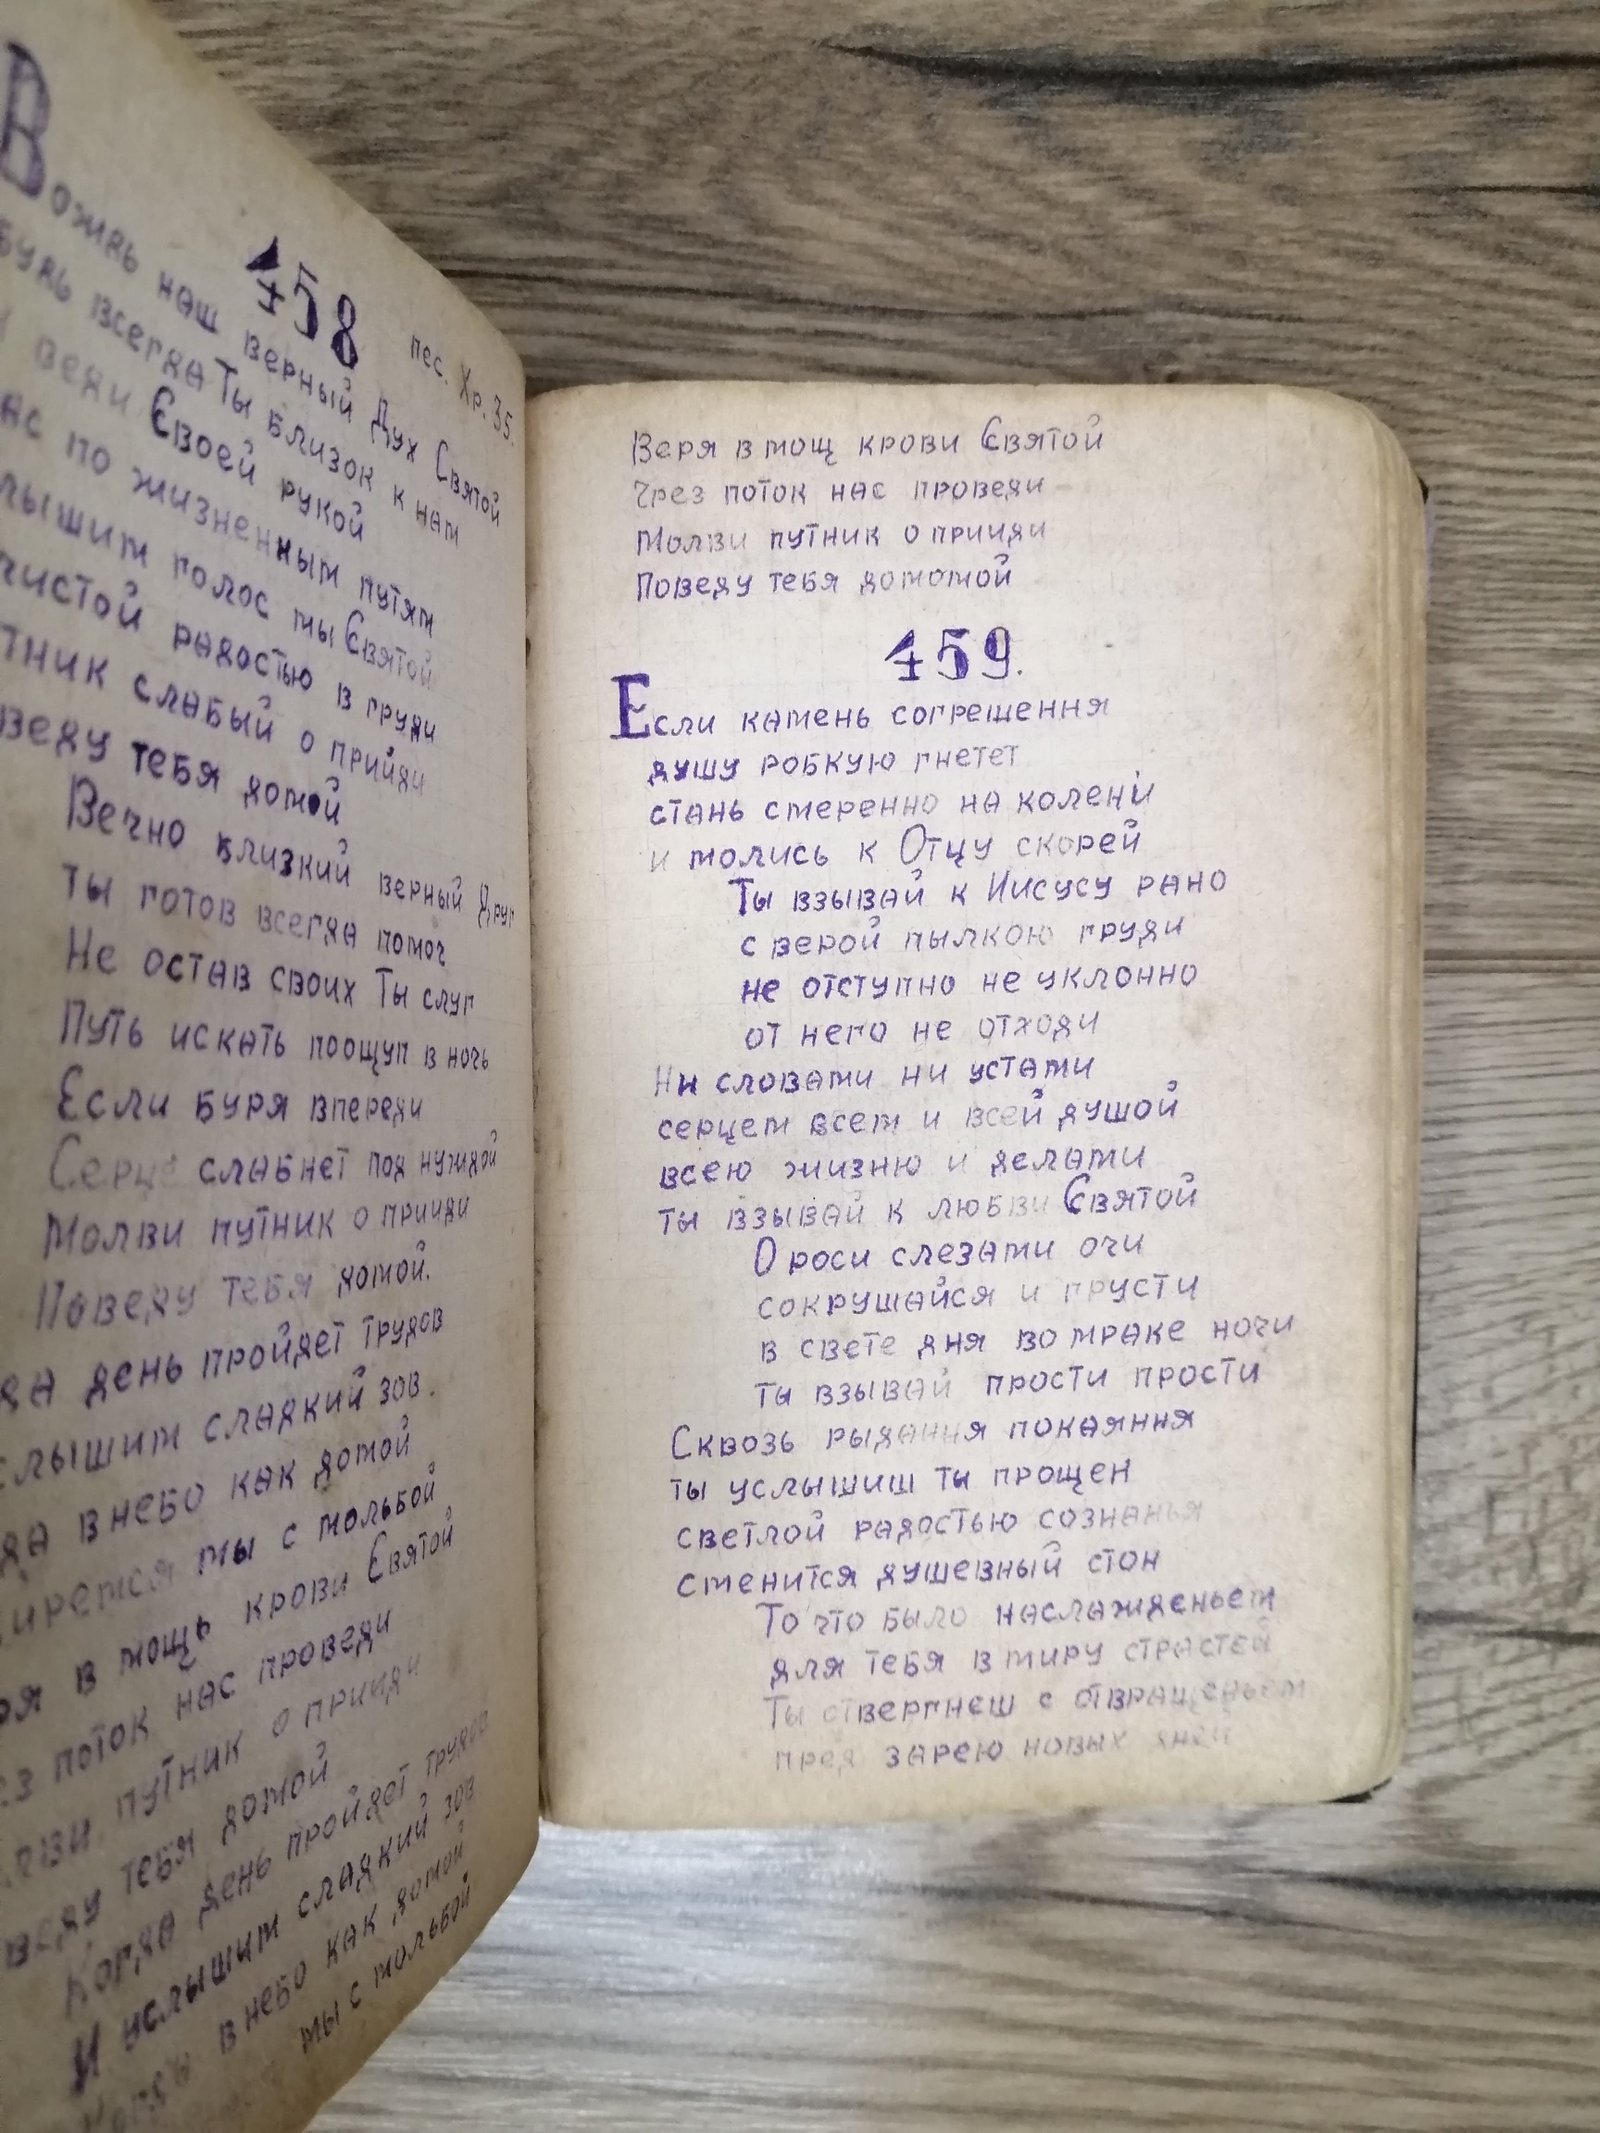 458
пес. Хр. 35.
Вождь наш верный Дух Святой
Будь всегда Ты близок к нам
веди Своей рукой
по жизненным путям
голос мы Святой
чистой радостью в груди
слабый о прийди
тебя домой
Вечно близкий верный Друг
ты готов всегда помоч
Не остав своих Ты слуг
Путь искать поощуп в ночь
Если буря впереди
Серце слабнет под нуждой
Молви путник о прииди
Поведу тебя домой.
день пройдет трудов
сладкий зов.
в небо как домой
мы с мольбой
в мощь крови Святой
поток нас проведи
путник о прииди
тебя домой
Когда день пройдет трудов
И услышим сладкий зов
в небо как домой
мы с мольбой
Веря в мощ крови Святой
Чрез поток нас проведи
Молви путник о прииди
Поведу тебя домомой
459.
Если камень согрешення
душу робкую гнетет
стань смеренно на колени
и молись к Отцу скорей
Ты взывай к Иисусу рано
с верой пылкою груди
не отступно не уклонно
от него не отходи
Ни словами ни устами
серцем всем и всей душой
всею жизню и делами
ты взывай к любви Святой
О роси слезами очи
сокрушайся и грусти
в свете дня во мраке ночи
ты взывай прости прости
Сквозь рыдання покаяння
ты услышиш ты прощен
светлой радостью сознанья
сменится душевный стон
То что было наслажденьем
для тебя в миру страстей
Ты отвергнеш с отвращеньем
пред зарею новых дней